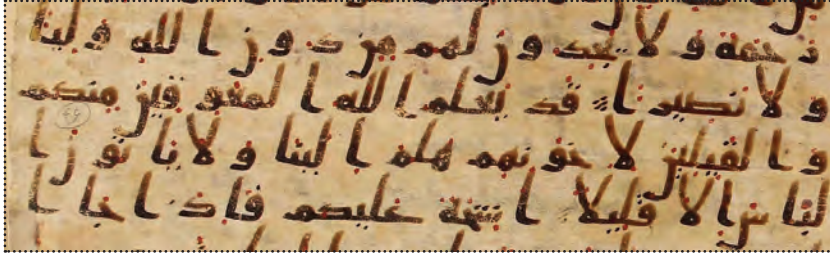 رحمة ولا يجدون لهم من دون الله وليا
ولا نصيرا قد يعلم الله المعوقين منكم
والقيلين لاخونهم هلم الينا ولا ياتون ا
لباس الا قليلا اشحة عليكم فاذا جا ا